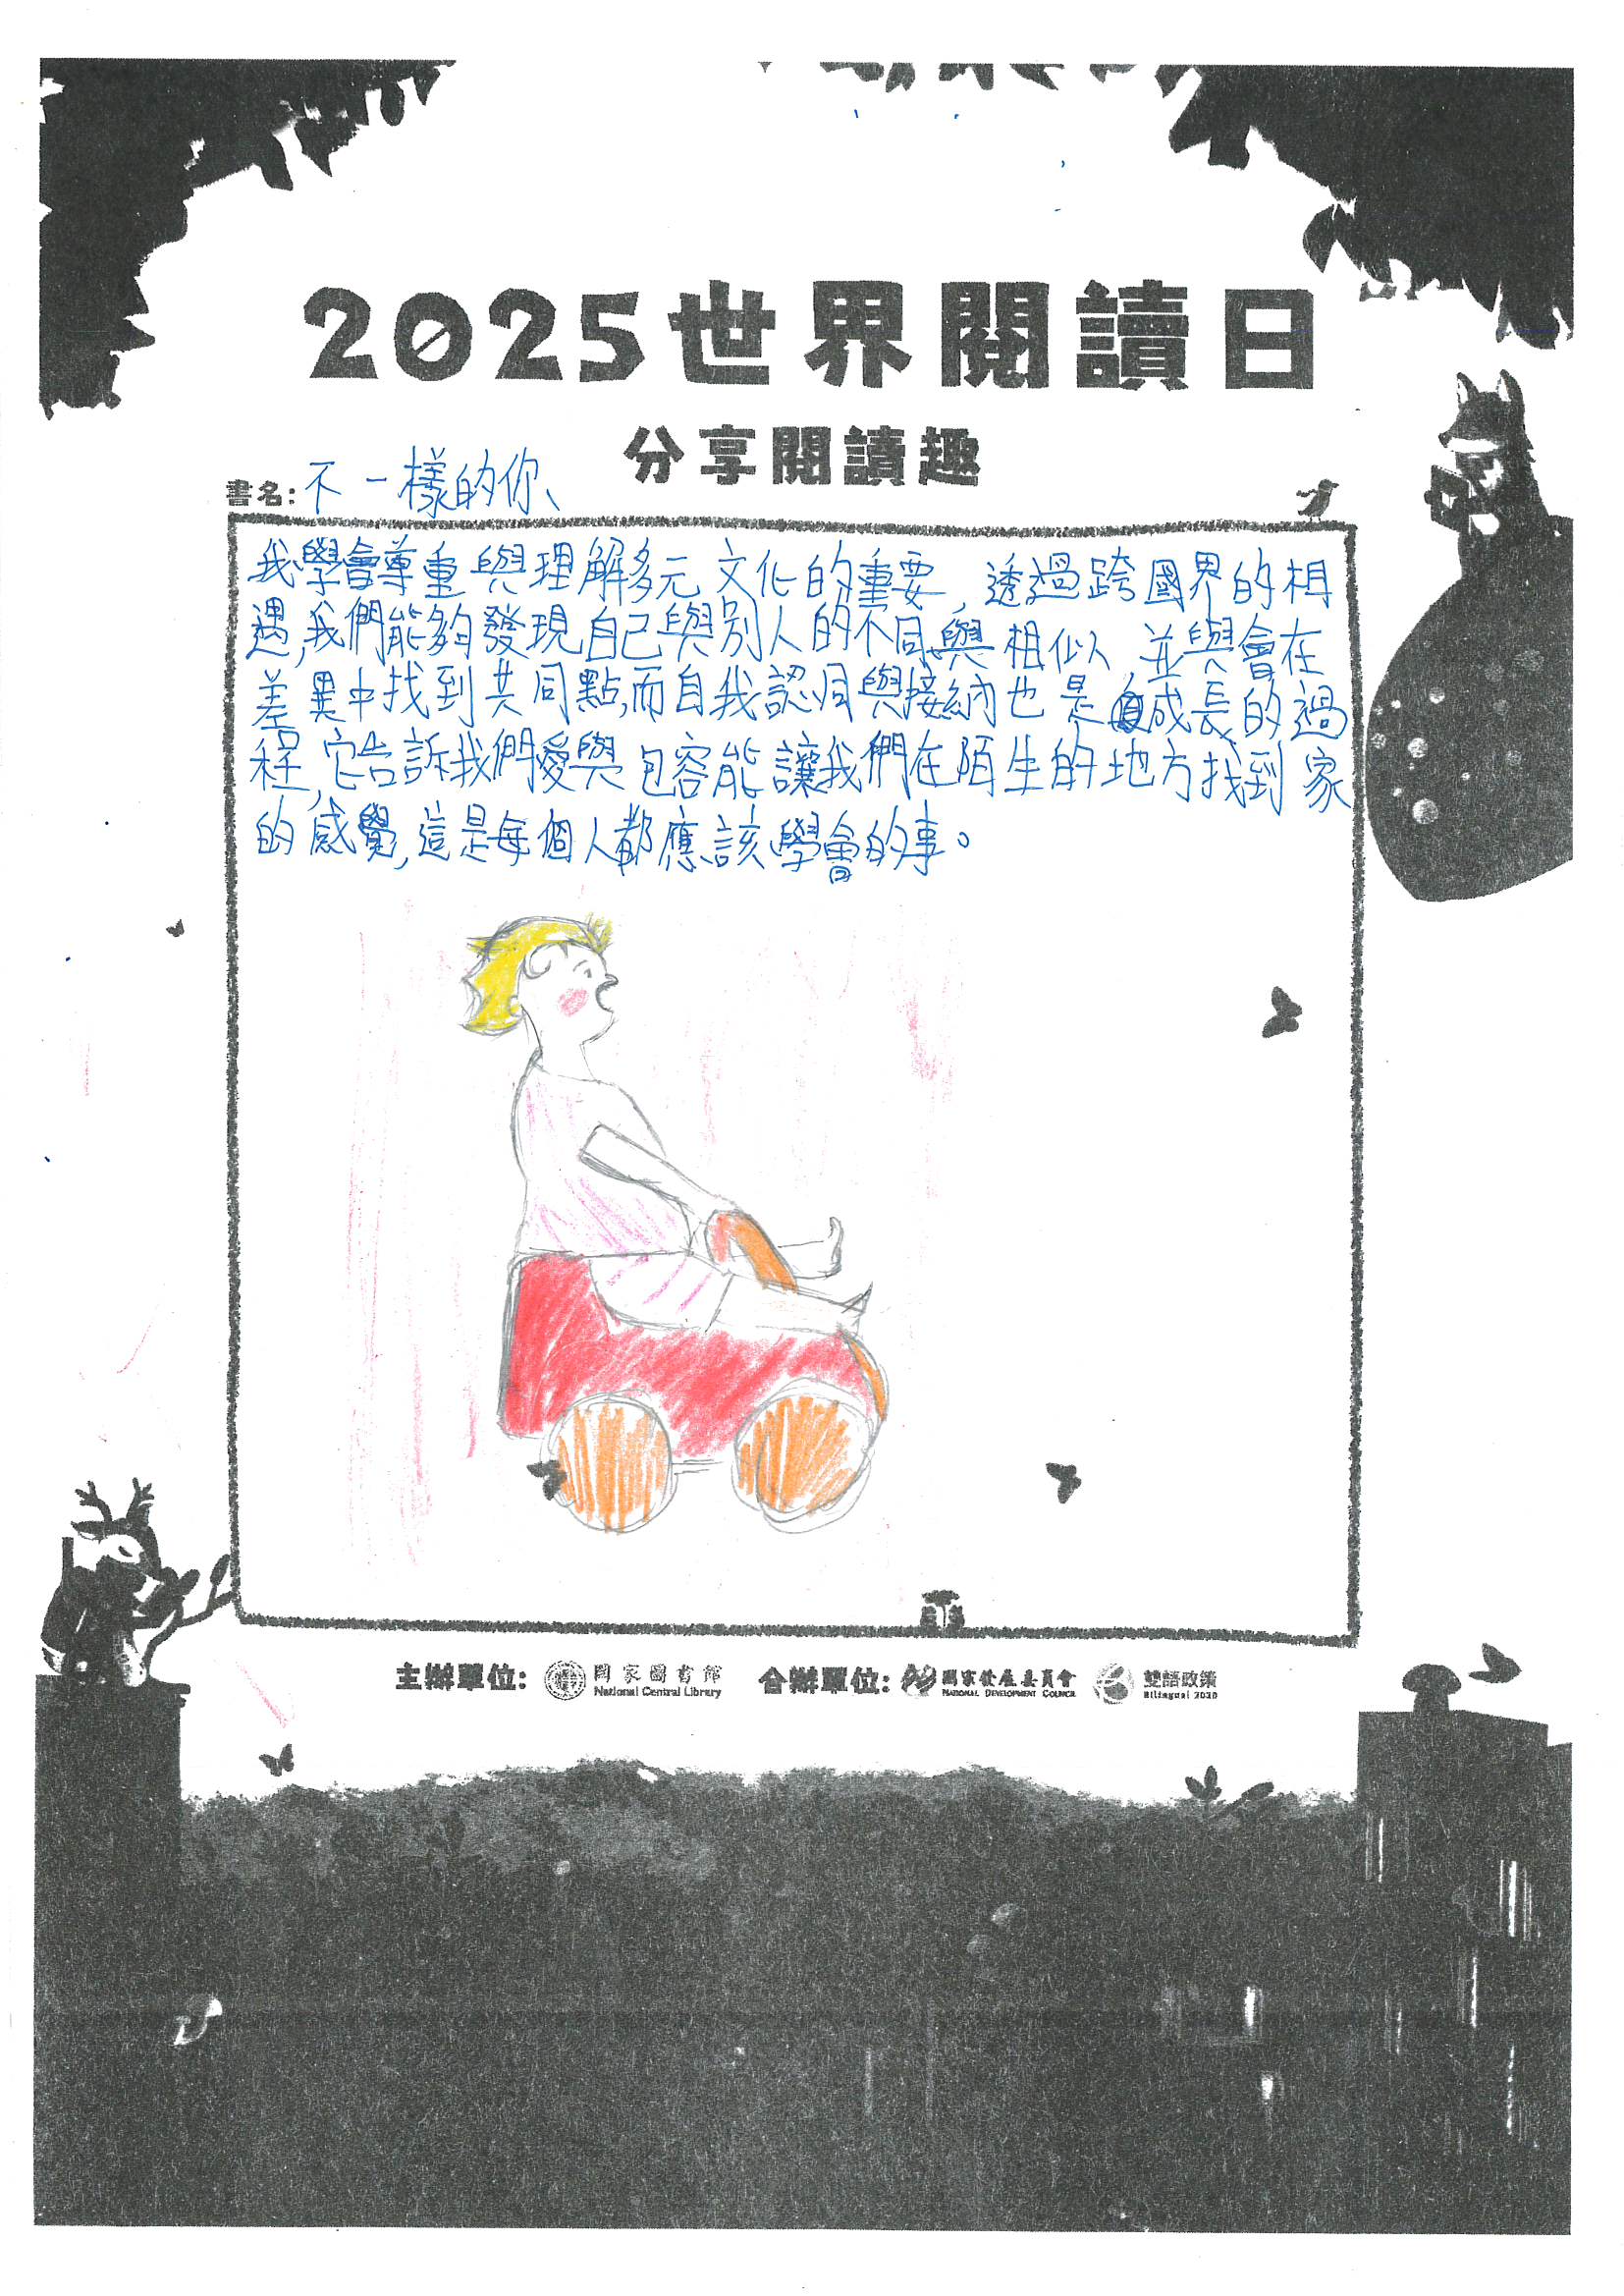 2025世界閱讀日
分享閱讀趣
書名:不一樣的你、
我學會尊重與理解多元文化的重要,透過跨國界的相
遇,我們能夠發現自己與別人的不同與相似,並與會在
差異中找到共同點,而自我認同與接納也是成長的過
程,它告訴我們愛與包容能讓我們在陌生的地方找到家
的感覺,這是每個人都應該學會的事。
主辦單位: 國家圖書館 National Central Library 合辦單位: 國家發展委員會 National Development Council 雙語政策 Bilingual 2030